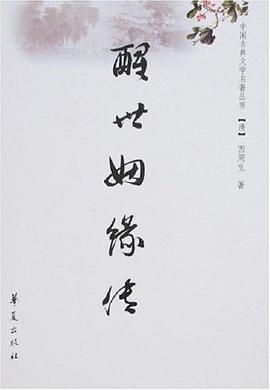 中国古典文学名著丛书【清】西周生 著
醒世姻缘传
华夏出版社